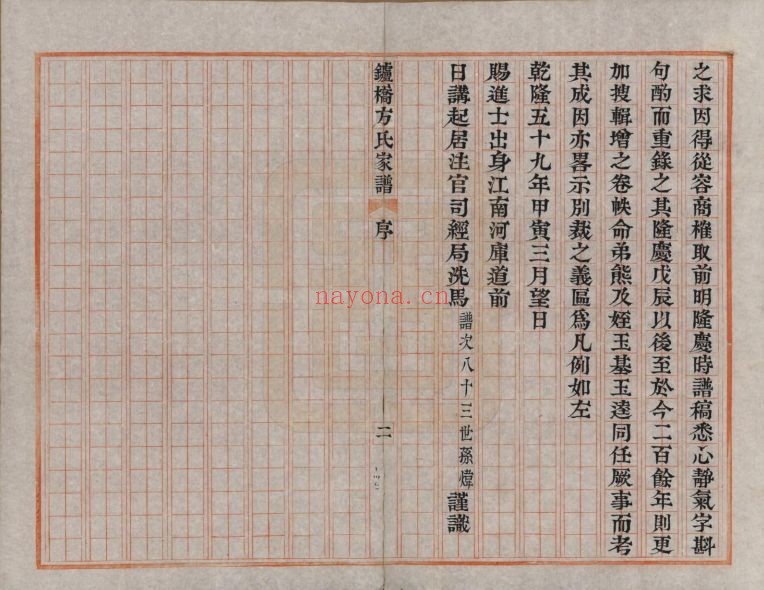 之求因得從容商榷取前明隆慶時譜稿悉心靜氣字斟
句酌而重錄之其隆慶戊辰以後至於今二百餘年則更
加搜輯增之卷帙命弟熊及姪玉基玉逵同任厥事而考
其成因亦畧示別裁之義區爲凡例如左
乾隆五十九年甲寅三月望日
賜進士出身江南河庫道前
日講起居注官司經局洗馬譜次八十三世孫煒謹識
鑪橋方氏家譜 序 二
nayona.cn